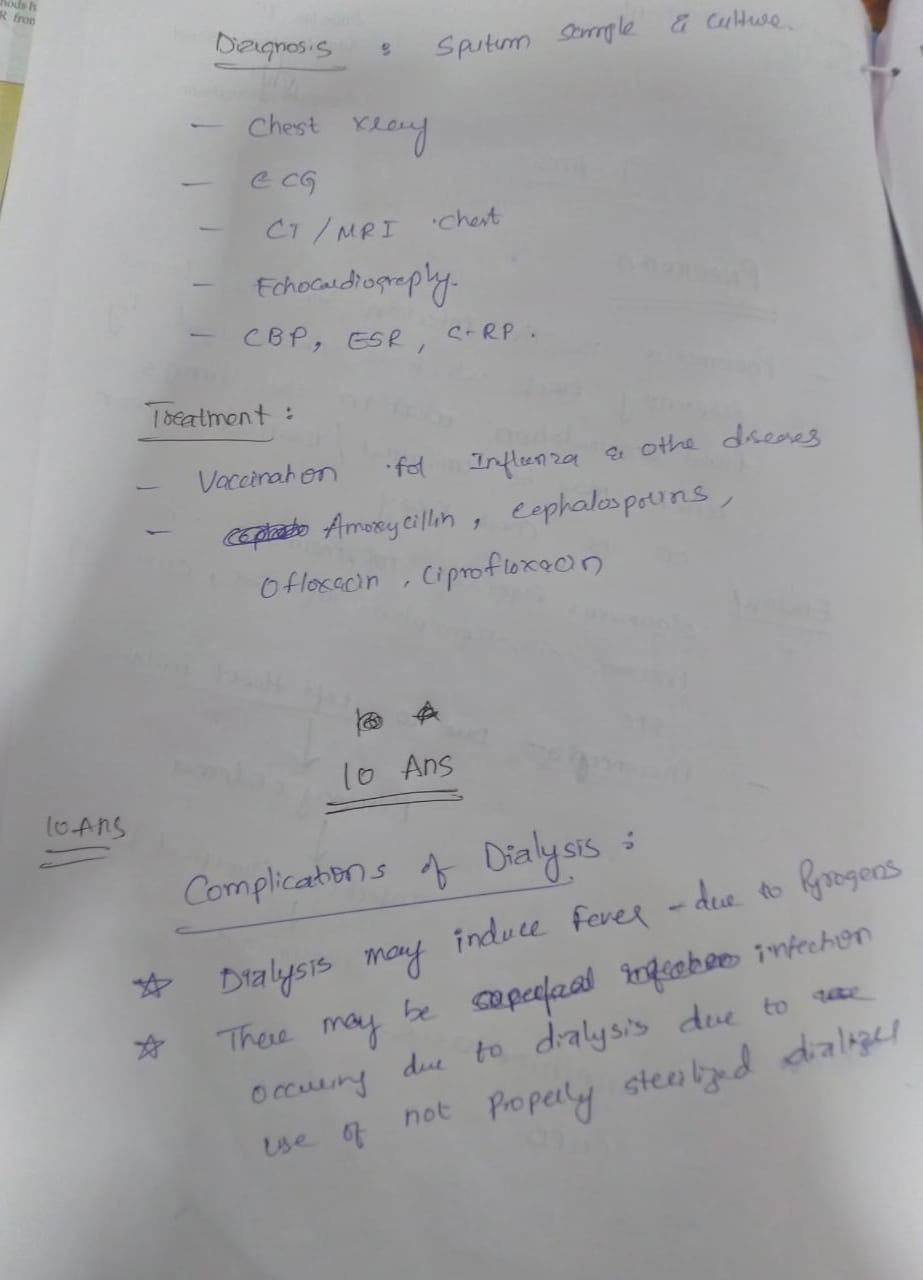 nods h
R from
Diagnosis : Sputum Sample & Culture.
— Chest xray
— ECG
— CT / MRI Chest
— Echocardiography.
— CBP, ESR, CRP.
Treatment :
— Vaccination for Influenza & othe diseases
— Amoxycillin, cephalosporins,
Ofloxacin, Ciprofloxacin
10 Ans
10 Ans
Complications of Dialysis :
☆ Dialysis may induce fever - due to Pyrogens
☆ There may be infection
occuring due to dialysis due to
use of not properly sterilized dialyzer